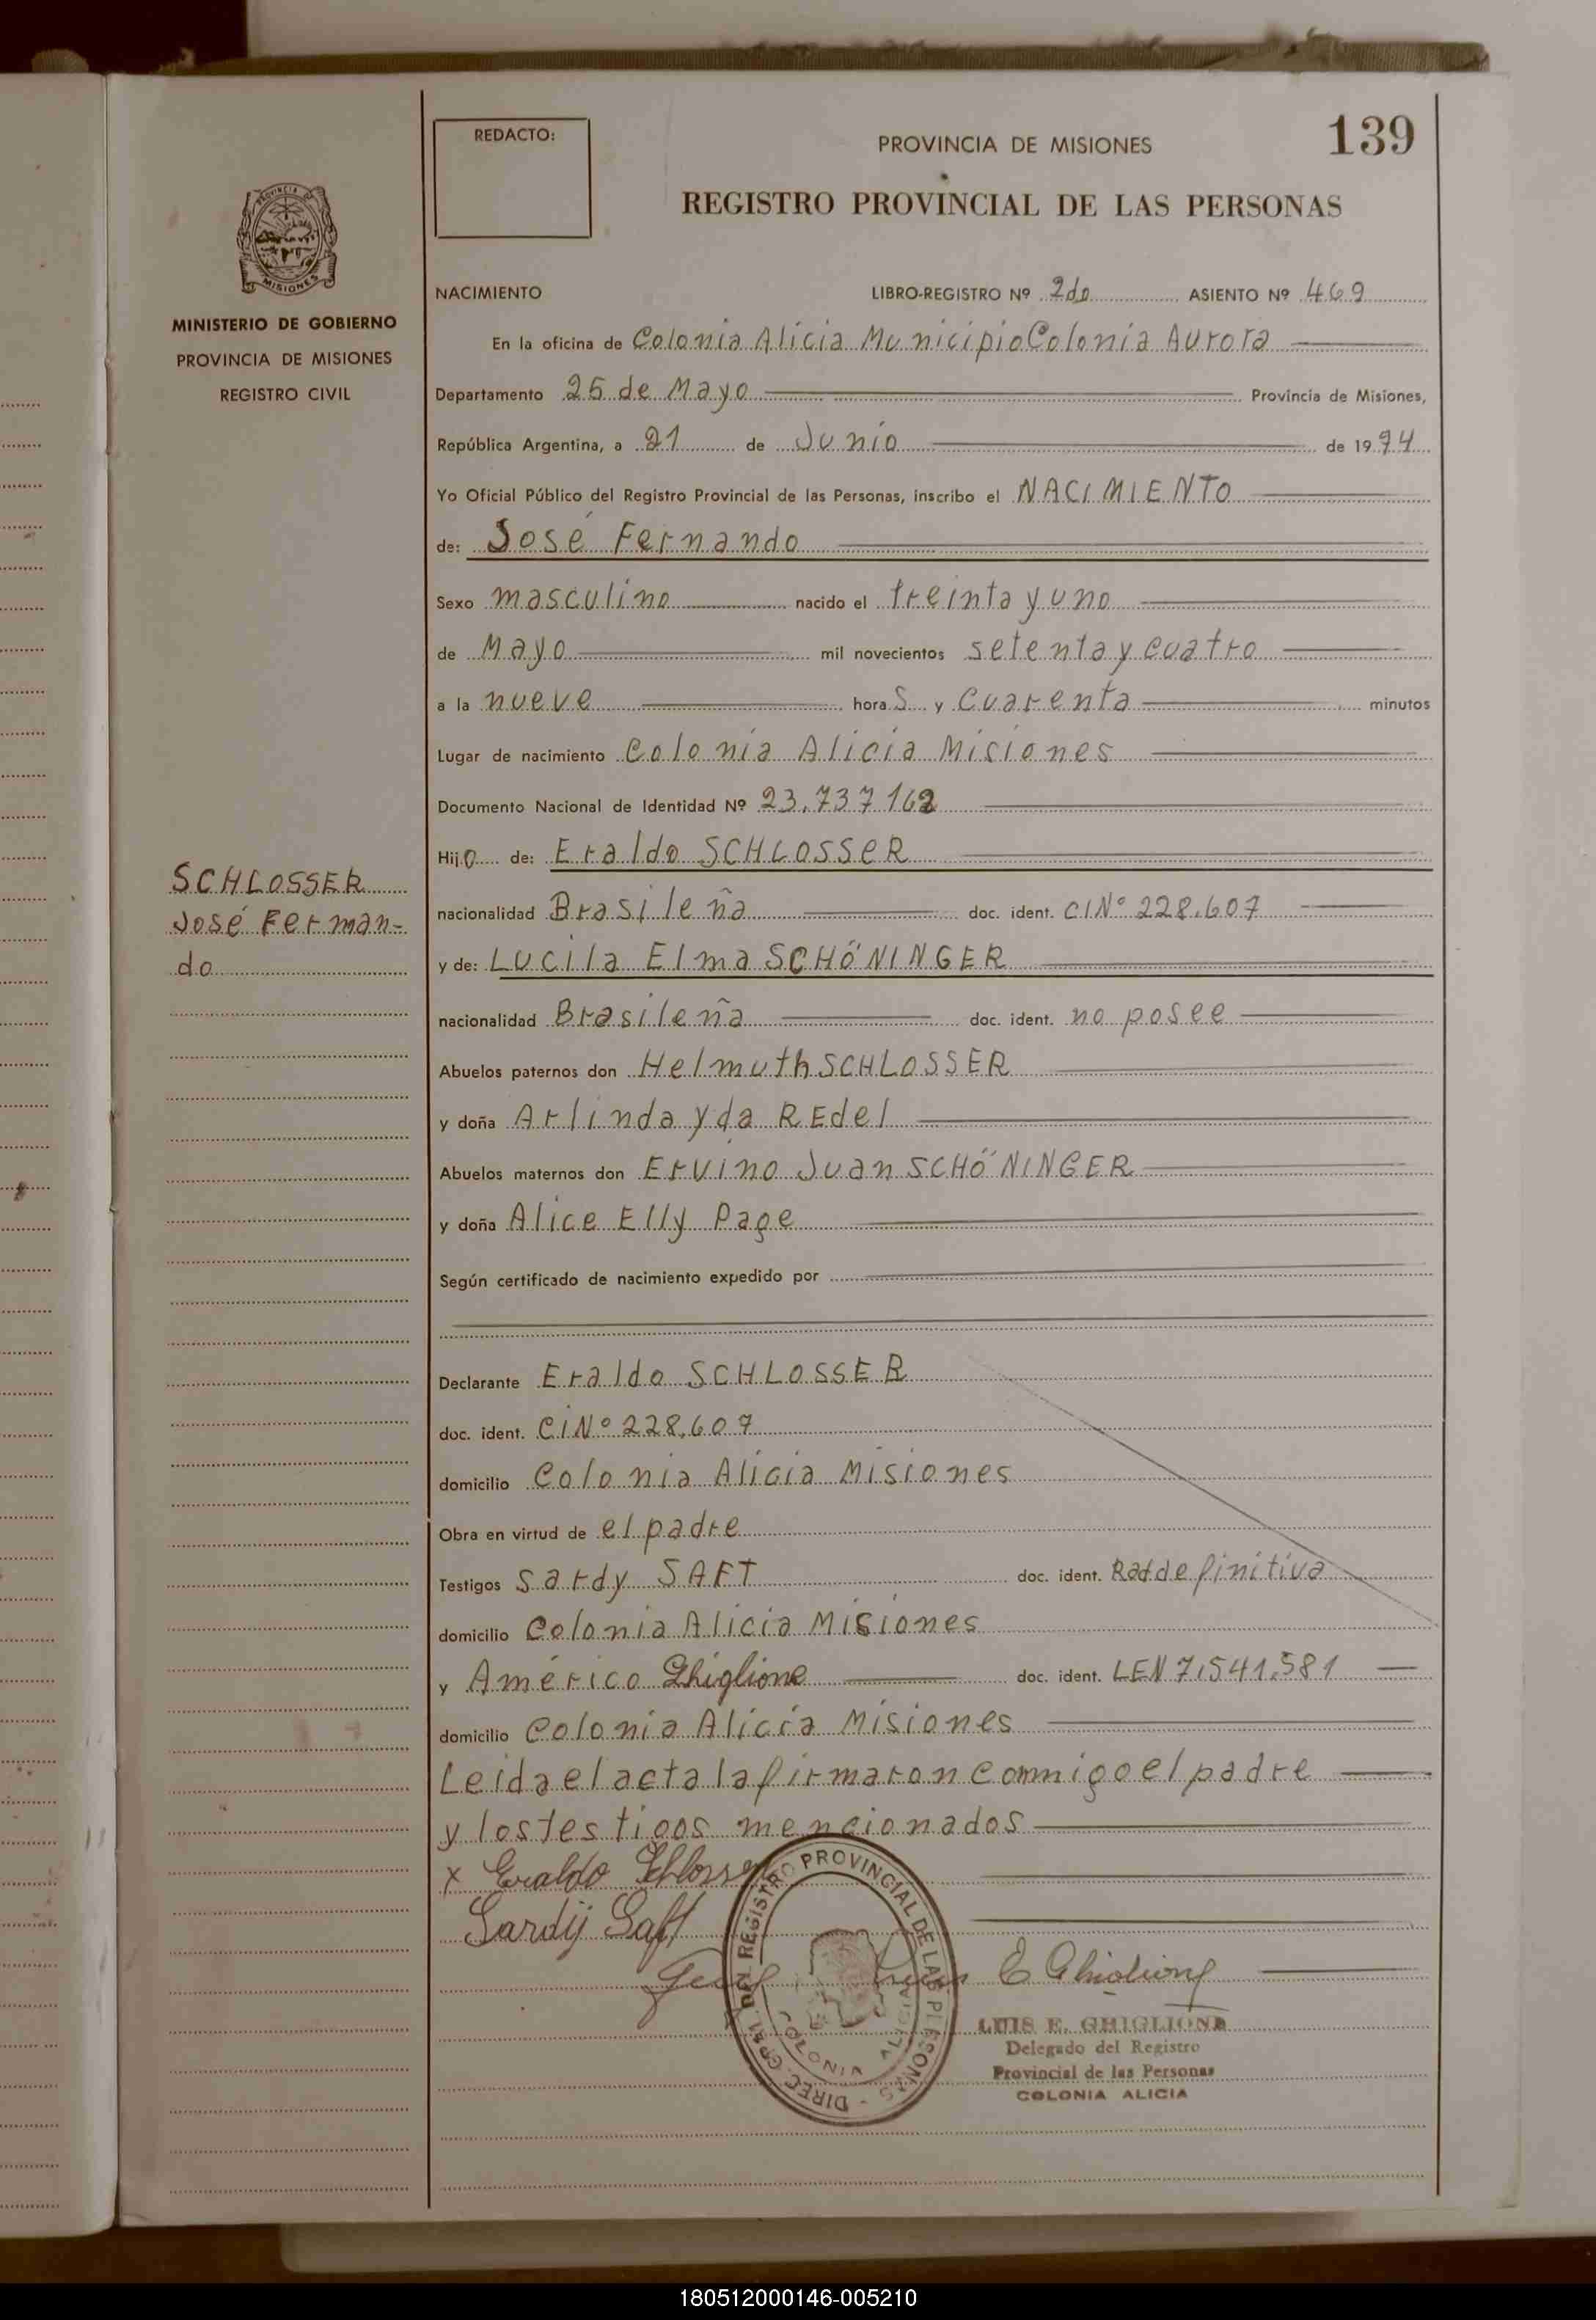 REDACTO:
PROVINCIA DE MISIONES
139
REGISTRO PROVINCIAL DE LAS PERSONAS
PROVINCIA DE
MISIONES
MINISTERIO DE GOBIERNO
PROVINCIA DE MISIONES
REGISTRO CIVIL
SCHLOSSER
José Fernan-
do
NACIMIENTO LIBRO-REGISTRO Nº 2do ASIENTO Nº 469
En la oficina de Colonia Alicia Municipio Colonia Aurora
Departamento 25 de Mayo Provincia de Misiones,
República Argentina, a 21 de Junio de 1974
Yo Oficial Público del Registro Provincial de las Personas, inscribo el NACIMIENTO
de: José Fernando
Sexo masculino nacido el treinta y uno
de Mayo mil novecientos setenta y cuatro
a la nueve horaS y cuarenta minutos
Lugar de nacimiento Colonia Alicia Misiones
Documento Nacional de Identidad Nº 23.737162
Hijo de: Eraldo SCHLOSSER
nacionalidad Brasileña doc. ident. CI Nº 228.607
y de: Lucila Elma SCHÖNINGER
nacionalidad Brasileña doc. ident. no posee
Abuelos paternos don Helmuth SCHLOSSER
y doña Arlinda yda REdel
Abuelos maternos don Ervino Juan SCHÖNINGER
y doña Alice Elly Page
Según certificado de nacimiento expedido por
Declarante Eraldo SCHLOSSER
doc. ident. CI Nº 228.607
domicilio Colonia Alicia Misiones
Obra en virtud de el padre
Testigos Sardy SAFT doc. ident. Rad definitiva
domicilio Colonia Alicia Misiones
y Américo Ghiglione doc. ident. LEN 7.541.581
domicilio Colonia Alicia Misiones
Leida el acta la firmaron conmigo el padre
y los testigos mencionados
x Eraldo Schlosser
Sardij Saft
E Ghiglione
DIREC. GRAL. DEL REGISTRO PROVINCIAL DE LAS PERSONAS -
COLONIA ALICIA
LUIS E. GHIGLIONE
Delegado del Registro
Provincial de las Personas
COLONIA ALICIA
180512000146-005210